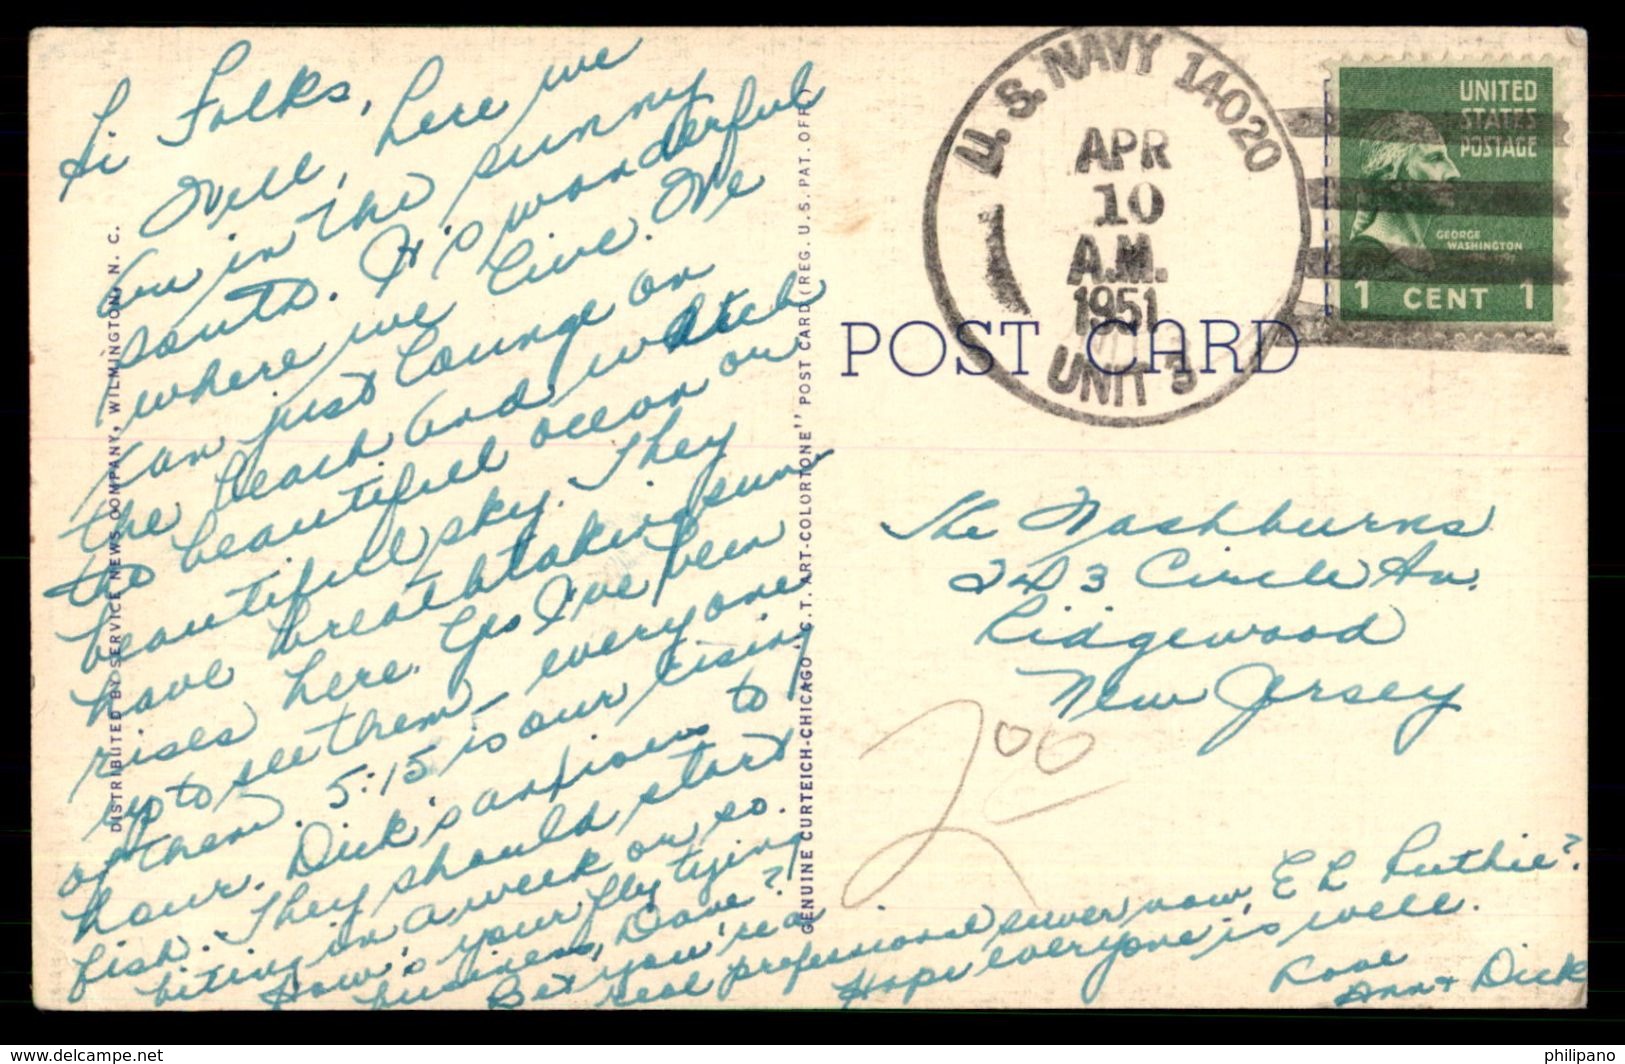 Hi Folks,
Well, here we
are in the sunny
south. It's wonderful
where we live. We
can just lounge on
the beach and watch
the beautiful ocean our
beautiful sky. They
have breathtaking sun
rises here. Yes I've been
up to see them - everyone
of them. 5:15 is our rising
hour. Dick's anxious to
fish. They should start
biting in a week or so.
How's your fly tying
business, Dave?
Bet you're a
real professional sewer now, E L Ruthie?
Hope everyone is well.
Love
Ann + Dick
DISTRIBUTED BY SERVICE NEWS COMPANY, WILMINGTON, N. C.
GENUINE CURTEICH-CHICAGO "C.T. ART-COLORTONE" POST CARD (REG. U.S. PAT. OFF.)
POST CARD
U.S. NAVY 14020
APR
10
A.M.
1951
UNIT 3
UNITED
STATES
POSTAGE
GEORGE
WASHINGTON
1 CENT 1
The Washburns
243 Circle Av.
Ridgewood
New Jersey
200
https://www.delcampe.net
philipano